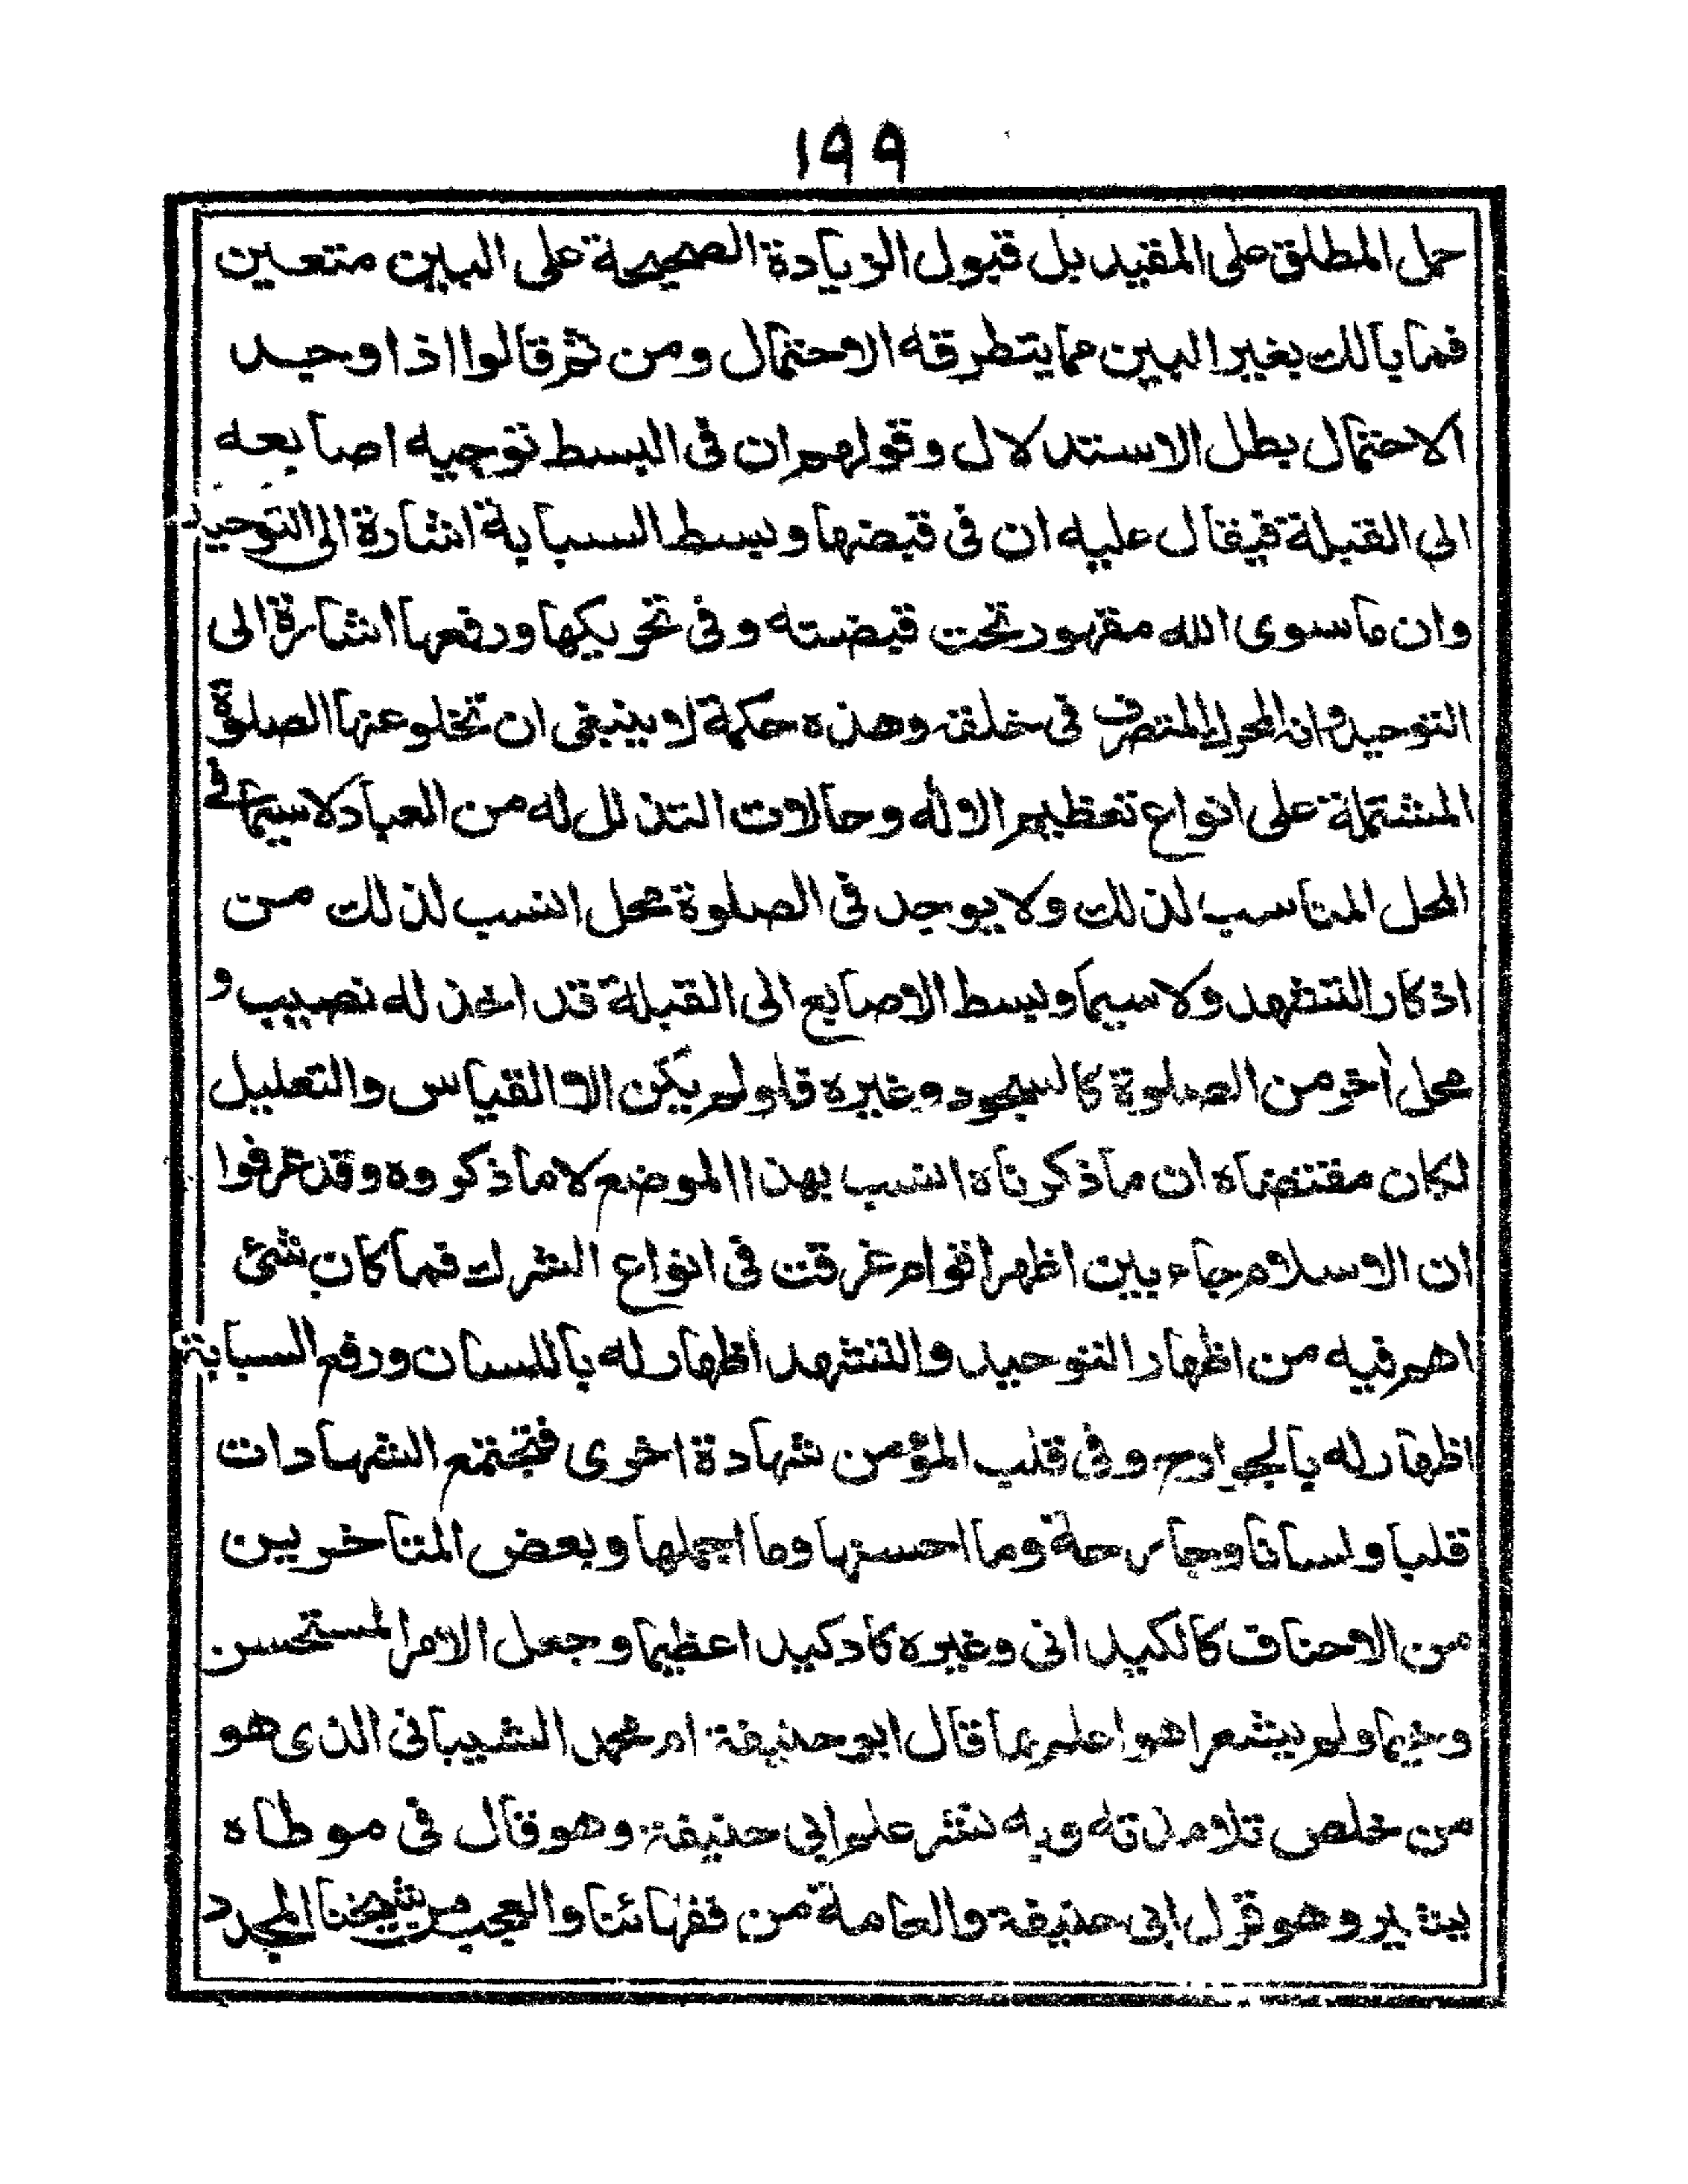 ١٩٩
حمل المطلق على المقيد بل قبول الزيادة الصحيحة على البين متعين
فما بالك بغير البين مما يتطرقه الاحتمال ومن ثم قالوا اذا وجد
الاحتمال بطل الاستدلال وقولهم ان فى البسط توجيه اصابعه
الى القبلة فيقال عليه ان فى قبضها وبسط السبابة اشارة الى التوحيد
وان ما سوى الله مقهور تحت قبضته وفى تحريكها ورفعها اشارة الى
التوحيد وانه المحرك المتصرف فى خلقه وهذه حكمة لا ينبغى ان تخلو عنها الصلوة
المشتملة على انواع تعظيم الاله وحالات التذلل له من العباد لا سيما فى
المحل المناسب لذلك ولا يوجد فى الصلوة محل انسب لذلك من
اذكار التشهد ولا سيما وبسط الاصابع الى القبلة قد اخذ له نصيب و
محل أخر من الصلوة كالسجود وغيره فلو لم يكن الا القياس والتعليل
لكان مقتضاه ان ما ذكرناه انسب بهذا الموضع لا ما ذكروه وقد عرفوا
ان الاسلام جاء بين اظهر اقوام غرقت فى انواع الشرك فما كان شئ
اهم فيه من اظهار التوحيد والتشهد اظهار له باللسان ورفع السبابة
اظهار له بالجوارح وفى قلب المؤمن شهادة اخرى فتجتمع الشهادات
قلبا ولسانا وجارحة وما احسنها وما اجملها وبعض المتاخرين
من الاحناف كالكيدانى وغيره كاد كيدا عظيما وجعل الامر المستحسن
وخيما ولم يشعر اهوا علم بما قال ابو حنيفة ام محمد الشيبانى الذى هو
من خلص تلامذته وبه نشر علم ابى حنيفة وهو قال فى موطاه
يشير وهو قول ابى حنيفة والعامة من فقهائنا والعجب من شيخنا المجدد